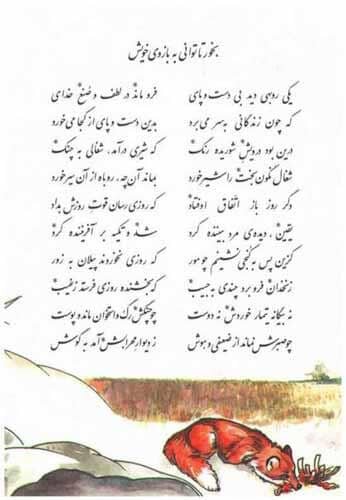 بخور تا توانی به بازوی خویش
یکی روبهی دید بی دست و پای فرو ماند در لطف و صنع خدای
که چون زندگانی به سر می برد بدین دست و پای از کجا می خورد
درین بود درویش شوریده رنگ که شیری درآمد، شغالی به چنگ
شغال نگون بخت را شیر خورد بماند آن چه، روباه از آن سیر خورد
دگر روز باز اتفاق اوفتاد که روزی رسان قوت روزش بداد
یقین، دیده ی مرد بیننده کرد شد و تکیه بر آفریننده کرد
کزین پس به کنجی نشینم چو مور که روزی نخوردند پیلان به زور
زنخدان فرو برد چندی به جیب که بخشنده روزی فرستد ز غیب
نه بیگانه تیمار خوردش نه دوست چو چنگش رگ و استخوان ماند و پوست
چو صبرش نماند از ضعیفی و هوش ز دیوار محرابش آمد به گوش